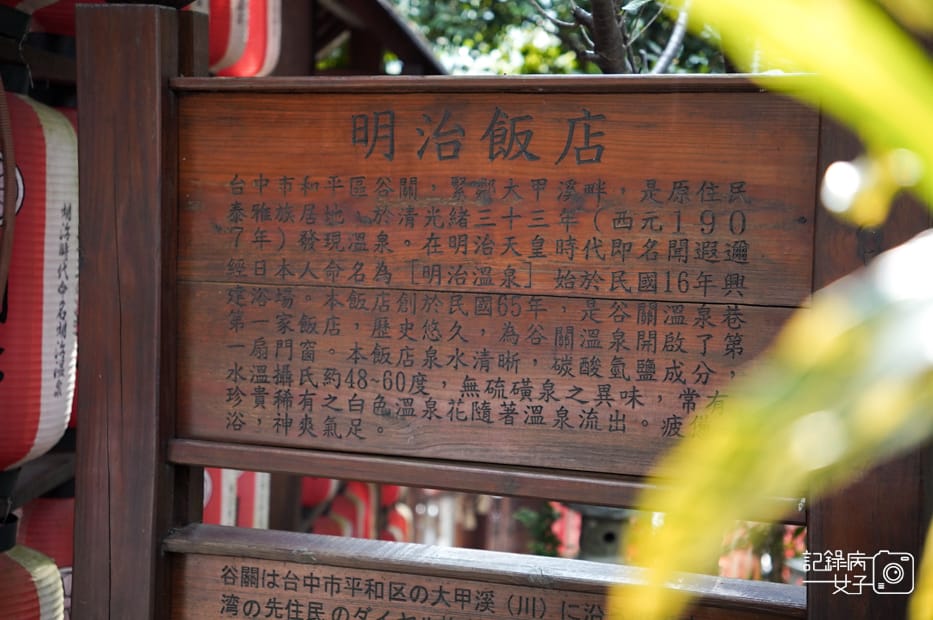 明治飯店
台中市和平區谷關，緊鄰大甲溪畔，是原住民
泰雅族居地，於清光緒三十三年（西元190
7年）發現溫泉。在明治天皇時代即名聞遐邇
經日本人命名為［明治溫泉］始於民國16年興
建浴場。本飯店創於民國65年，是谷關溫泉巷
第一家飯店，歷史悠久，為谷關溫泉開啟了第
一扇門窗。本飯店泉水清晰，碳酸氫鹽成分，
水溫攝氏約48~60度，無硫磺泉之異味，常有
珍貴稀有之白色溫泉花隨著溫泉流出。疲
浴，神爽氣足。
谷關は台中市平和区の大甲溪（川）に沿
湾の先住民のダイヤル
明治時代命名明治溫泉
記錄病
女子